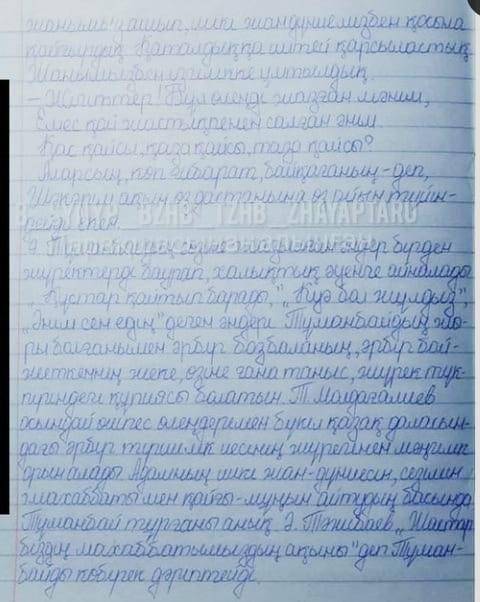 жанымыз ашып, ішкі жан дүниемізбен қосыла
қайғырдық. Қаталдыққа іштей қарсыластық.
Жанымызбен ізгілікке ұмтылдық.
– Жігіттер! Бұл өлеңді жазған мәнім,
Емес қой жастықпенен салған әнім.
Қас қайсы, қаза қайсы, таза қайсы?
Аларсың, көп ғибарат, байқағаның – деп,
Шәкәрім ақын өз дастанына өз ойын түйін-
дейді екен.
BZHB_TZHB_ZHAYAPTARU
әндер бірден
жүректерді баурап, халықтық әуенге айналады.
„Құстар қайтып барады", „Куә бол жұлдыз",
„Әнім сен едің" деген әндері Тұманбайдың жы-
ры болғанымен әрбір бозбаланың, әрбір бой-
жеткеннің жеке, өзіне ғана таныс, жүрек түк-
піріндегі құпиясы болатын. Т. Молдағалиев
осындай жібек өлеңдерімен бүкіл қазақ даласын-
дағы әрбір тіршілік иесінің жүрегінен мәңгілік
орын алады. Адамның ішкі жан-дүниесін, сезімін
махаббаты мен қайғы-мұңын айтудың басында
Тұманбай тұрғаны анық. Ә. Тәжібаев „Жастар
біздің махаббатымыздың ақыны" деп Тұман-
байды көбірек дәріптейді.